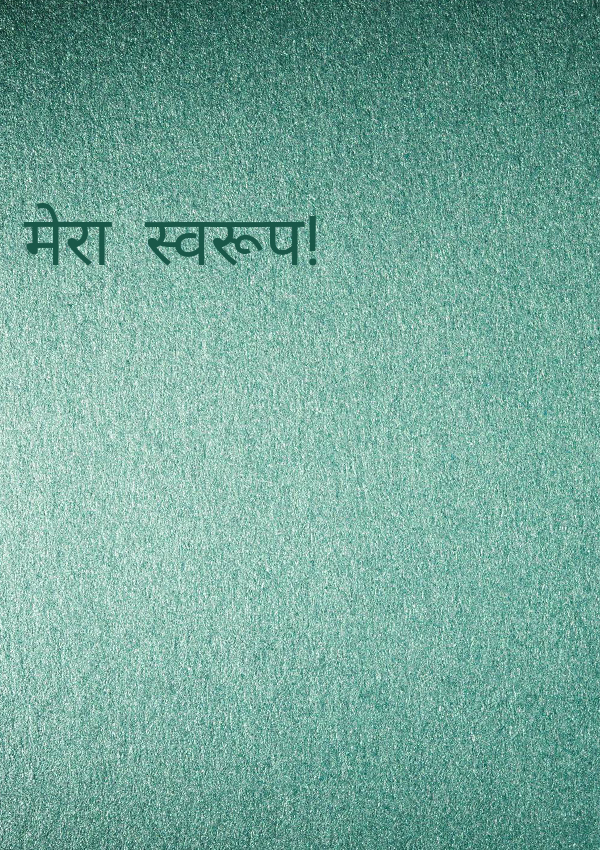 मेरा स्वरूप!